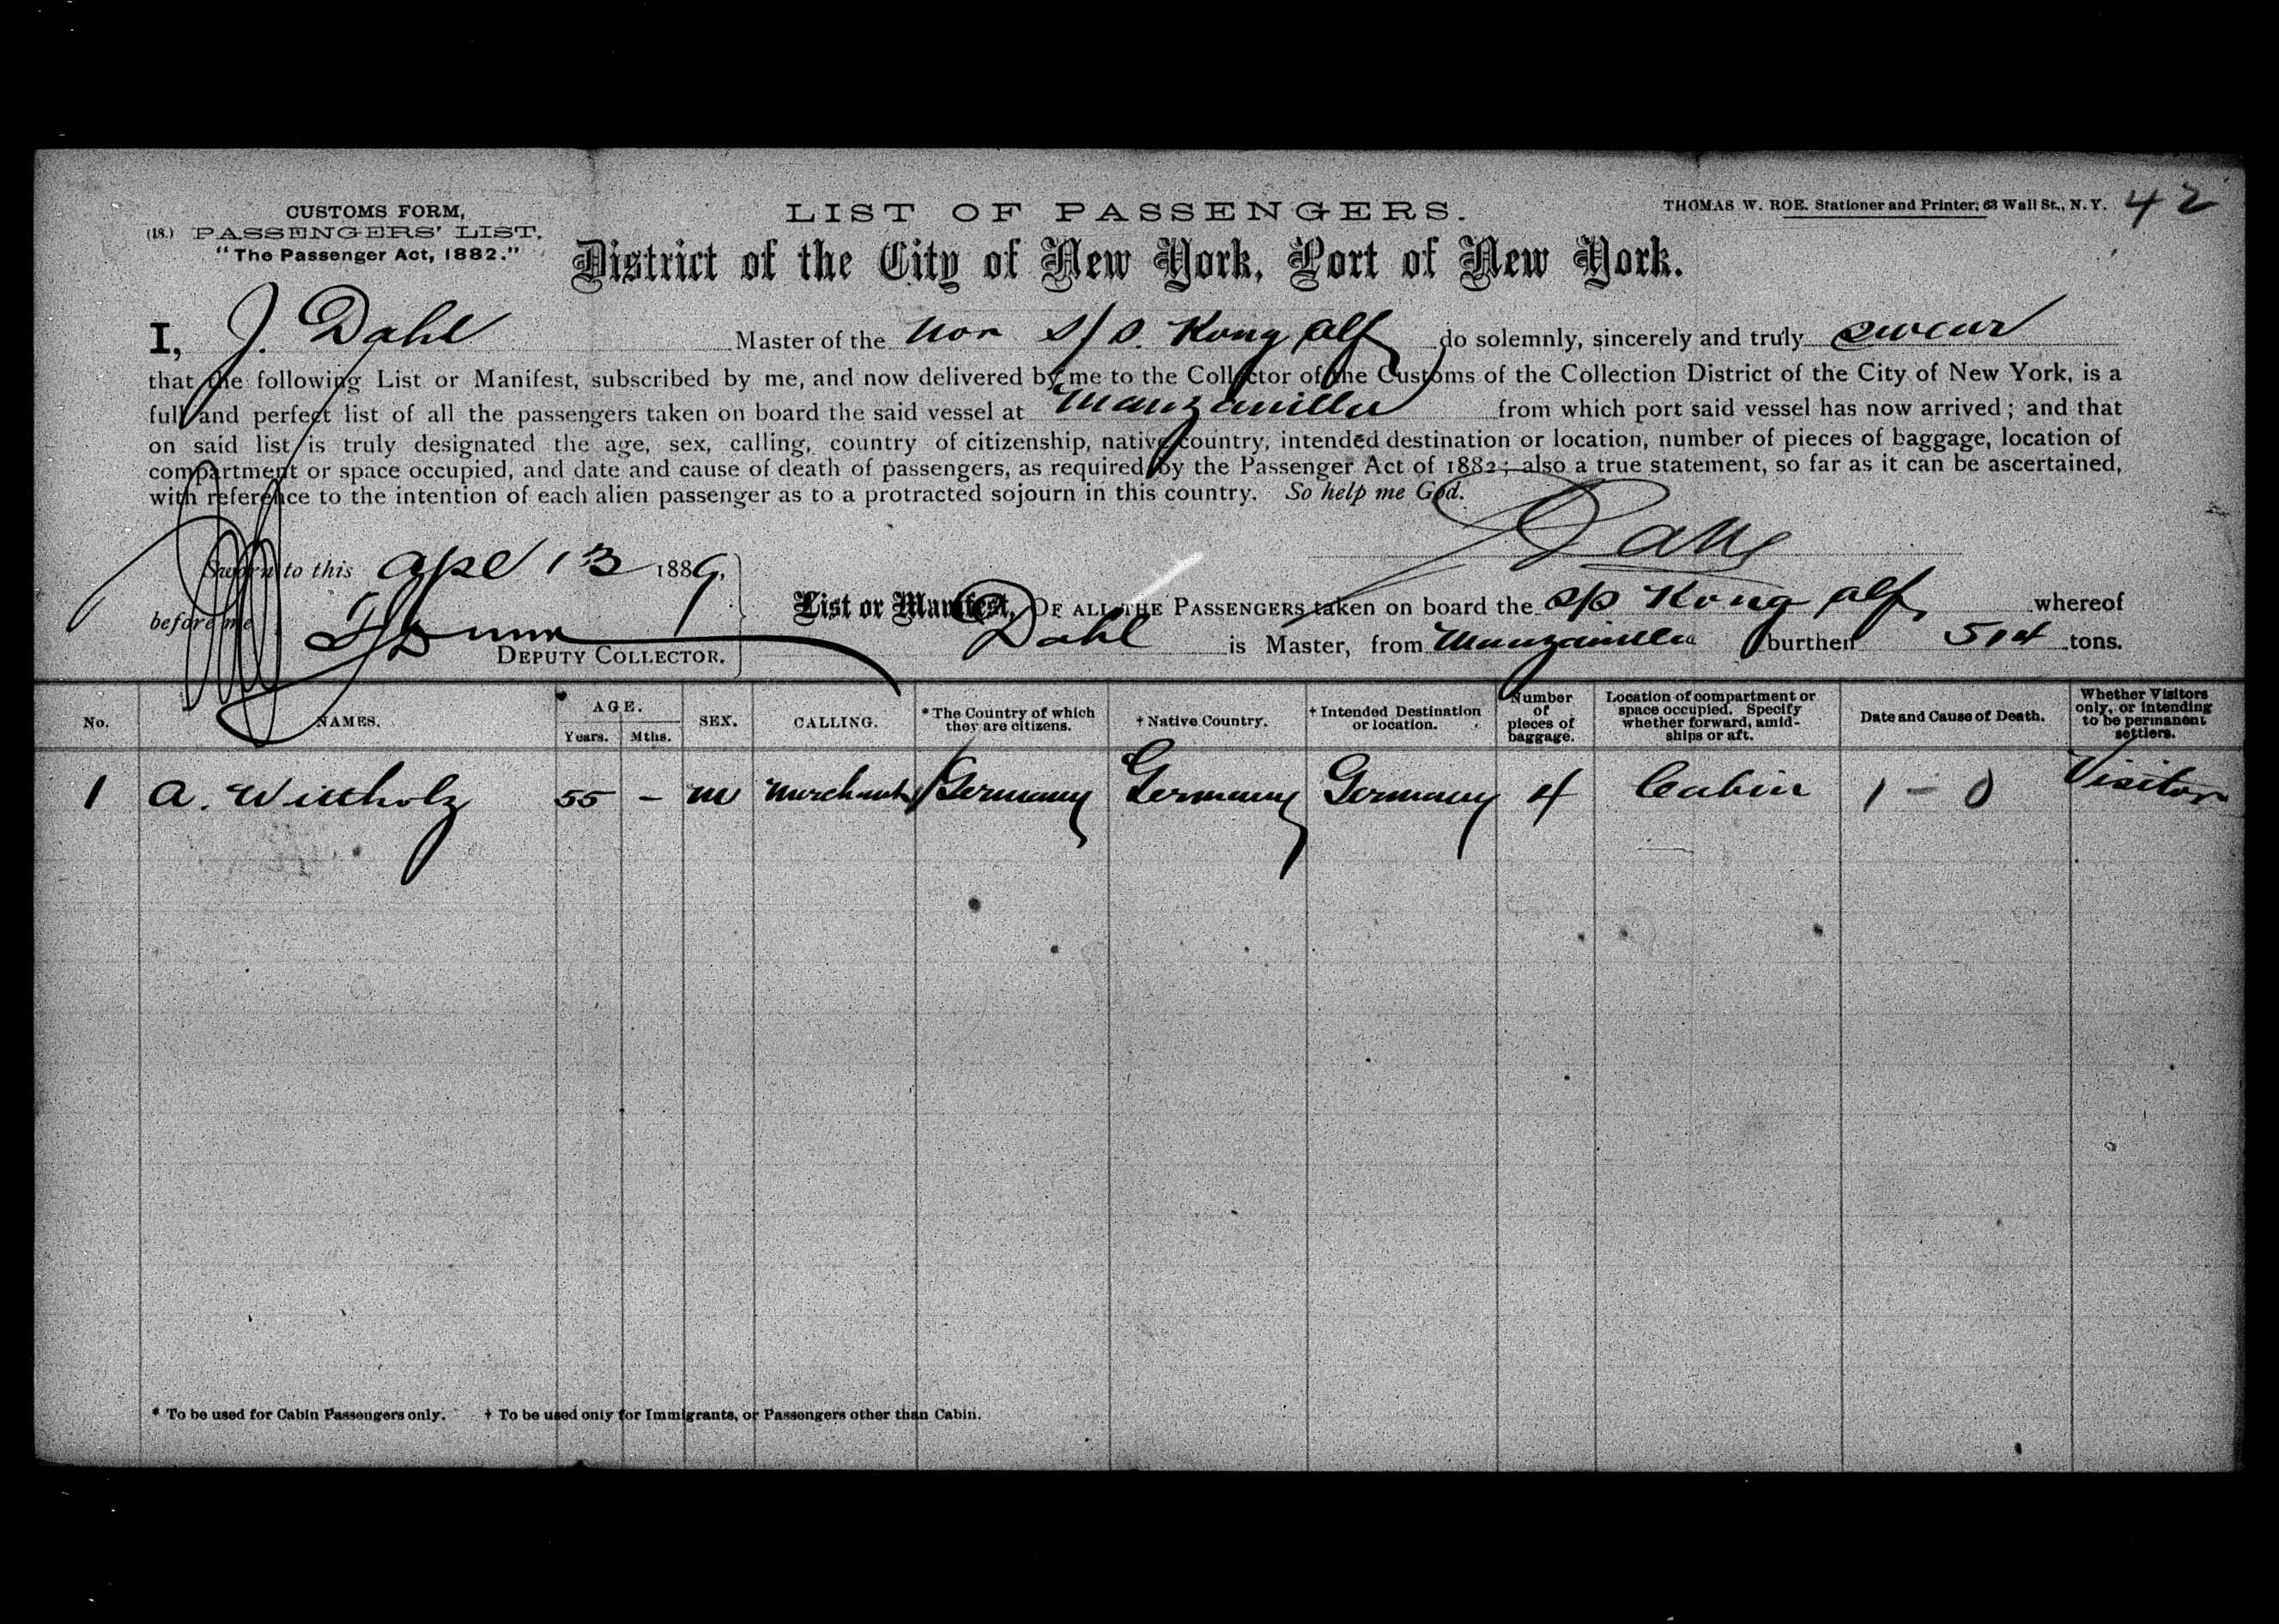 CUSTOMS FORM,
(18.) PASSENGERS' LIST,
"The Passenger Act, 1882."
LIST OF PASSENGERS.
THOMAS W. ROE. Stationer and Printer, 63 Wall St., N.Y. 42
District of the City of New York, Port of New York.
I, J. Dahl Master of the Nor S/S. Kong Alf do solemnly, sincerely and truly swear
that the following List or Manifest, subscribed by me, and now delivered by me to the Collector of the Customs of the Collection District of the City of New York, is a
full and perfect list of all the passengers taken on board the said vessel at Manzanilla from which port said vessel has now arrived; and that
on said list is truly designated the age, sex, calling, country of citizenship, native country, intended destination or location, number of pieces of baggage, location of
compartment or space occupied, and date and cause of death of passengers, as required by the Passenger Act of 1882; also a true statement, so far as it can be ascertained,
with reference to the intention of each alien passenger as to a protracted sojourn in this country. So help me God.
Dahl
Sworn to this Apl 13 1889,
before me
DEPUTY COLLECTOR.
List or Manifest, OF ALL THE PASSENGERS taken on board the S/S Kong Alf whereof
Dahl is Master, from Manzanilla burthen 514 tons.
No. NAMES. AGE. Years. Mths. SEX. CALLING. *The Country of which they are citizens. †Native Country. †Intended Destination or location. Number of pieces of baggage. Location of compartment or space occupied. Specify whether forward, amid-ships or aft. Date and Cause of Death. Whether Visitors only, or intending to be permanent settlers.
1 A. Wittholz 55 - m Merchant Germany Germany Germany 4 Cabin 1 - 0 Visitor
* To be used for Cabin Passengers only. † To be used only for Immigrants, or Passengers other than Cabin.